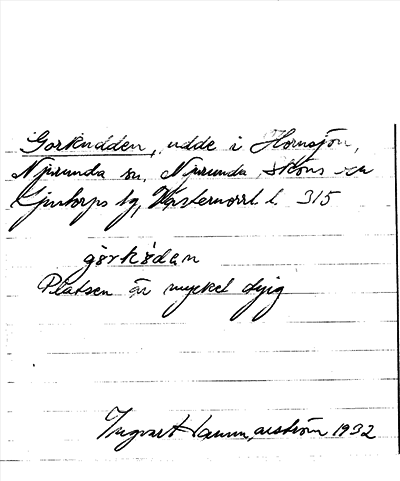 Gorkudden, udde i Hornsjön,
Njurunda sn, Njurunda Sköns
tg, Västernorrl l. 315
görkʹödan
Platsen är mycket dyig
Ingvar Hammarström 1932